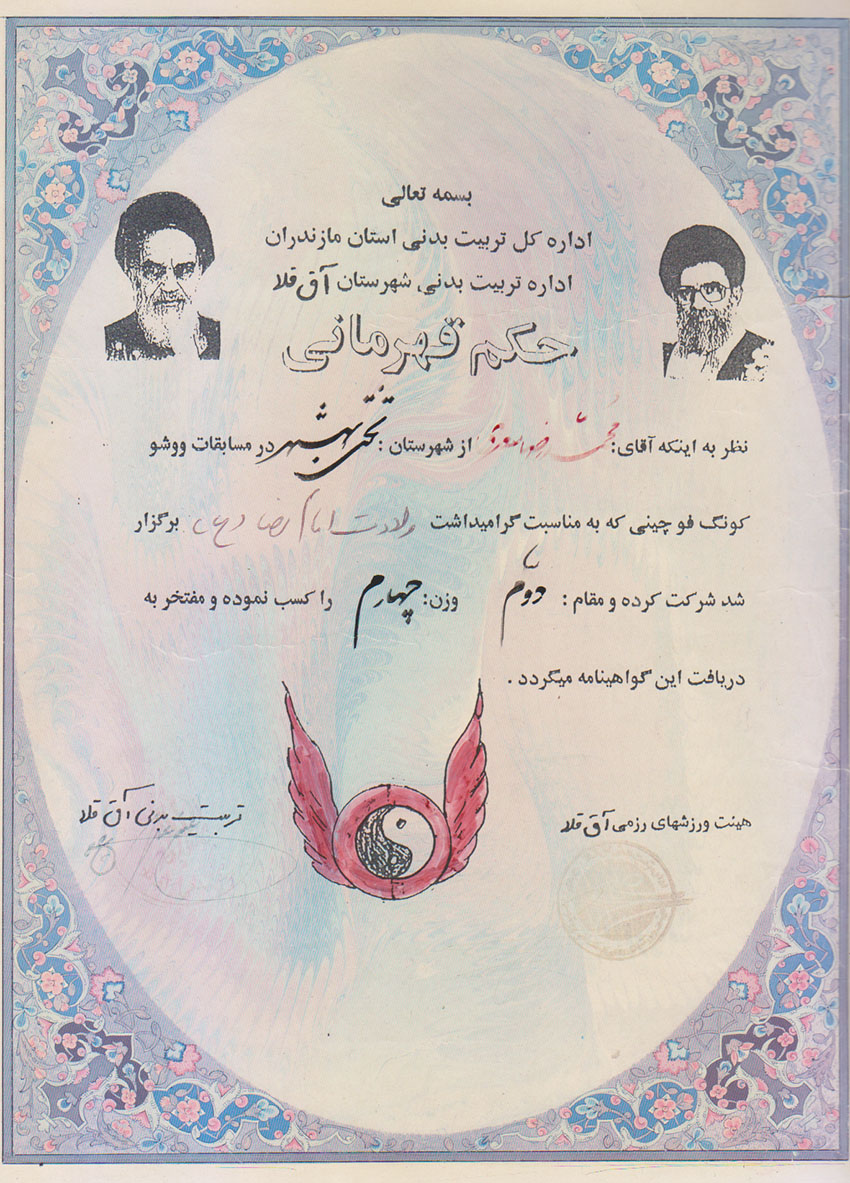 بسمه تعالی
اداره کل تربیت بدنی استان مازندران
اداره تربیت بدنی شهرستان آق قلا
حکم قهرمانی
نظر به اینکه آقای: محمد رضا از شهرستان: در مسابقات ووشو
کونگ فو چینی که به مناسبت گرامیداشت ولادت امام رضا (ع) برگزار
شد شرکت کرده و مقام: دوم وزن: چهارم را کسب نموده و مفتخر به
دریافت این گواهینامه میگردد.
هیئت ورزشهای رزمی آق قلا
تربیت بدنی آق قلا